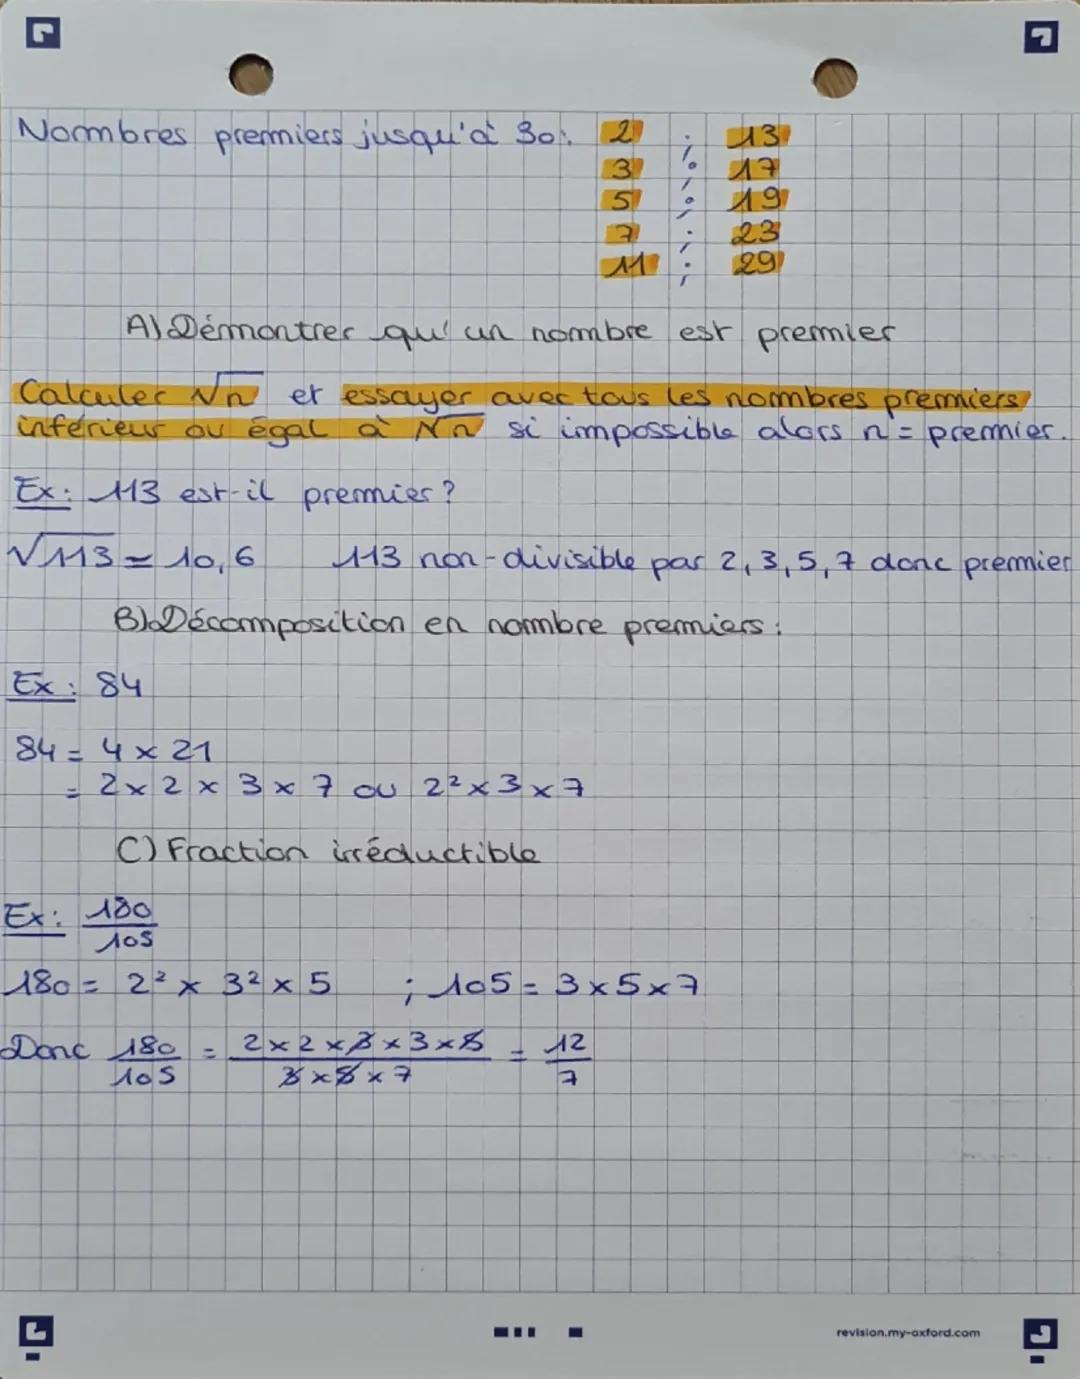 Nombres premiers jusqu'à 30: 2 ; 13
3 ; 17
5 ; 19
7 ; 23
11 ; 29
A) Démontrer qu'un nombre est premier
Calculer √n et essayer avec tous les nombres premiers
inférieur ou égal à √n si impossible alors n = premier.
Ex: 113 est-il premier?
√113 ≃ 10,6 113 non-divisible par 2, 3, 5, 7 donc premier
B) Décomposition en nombre premiers:
Ex: 84
84 = 4 × 21
= 2 × 2 × 3 × 7 ou 2² × 3 × 7
C) Fraction irréductible
Ex: 180/105
180 = 2² × 3² × 5 ; 105 = 3 × 5 × 7
Donc 180/105 = 2 × 2 × 3 × 3 × 5 / 3 × 5 × 7 = 12/7
revision.my-oxford.com